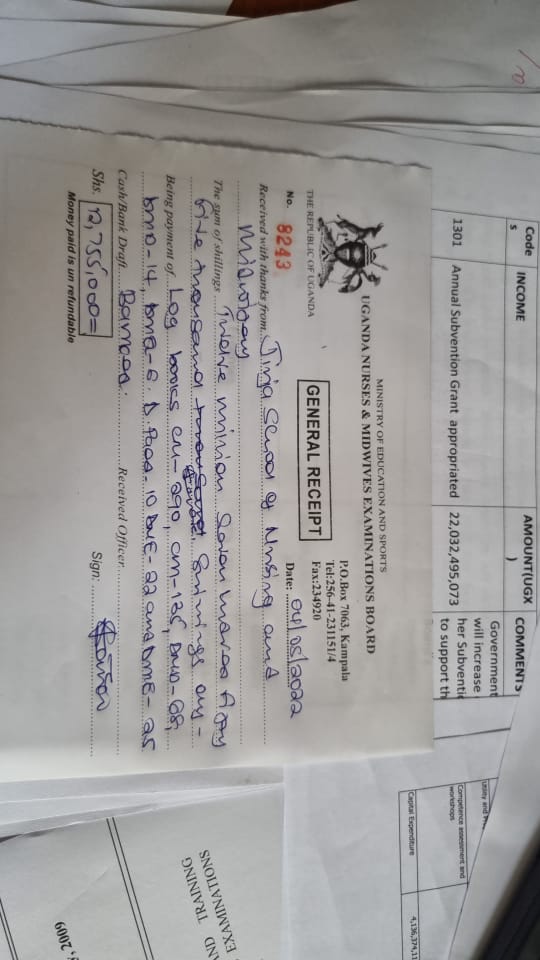 Code
s
INCOME
AMOUNT(UGX
)
COMMENTS
1301
Annual Subvention Grant appropriated
22,032,495,073
Government
will increase
her Subventi
to support th
MINISTRY OF EDUCATION AND SPORTS
UGANDA NURSES & MIDWIVES EXAMINATIONS BOARD
THE REPUBLIC OF UGANDA
P.O.Box 7063, Kampala
Tel:256-41-231151/4
Fax:234920
GENERAL RECEIPT
No. 8243
Date: 04/05/2022
Received with thanks from Jinja School of Nursing and
Midwifery
The sum of shillings Twelve million Seven hundred fifty
five thousand shillings only-
Being payment of Log books CN-290, CM-125, DNO-28,
DMO-14, DMA-6, D. Paed-10 DNE-22 and DME-25
Cash/Bank Draft Banked. Received Officer
Shs. 12,755,000= Sign:
Money paid is un refundable
Competence assessment and
workshops
Capital Expenditure
4,136,374,11
ND TRAINING
EXAMINATIONS
, 2009